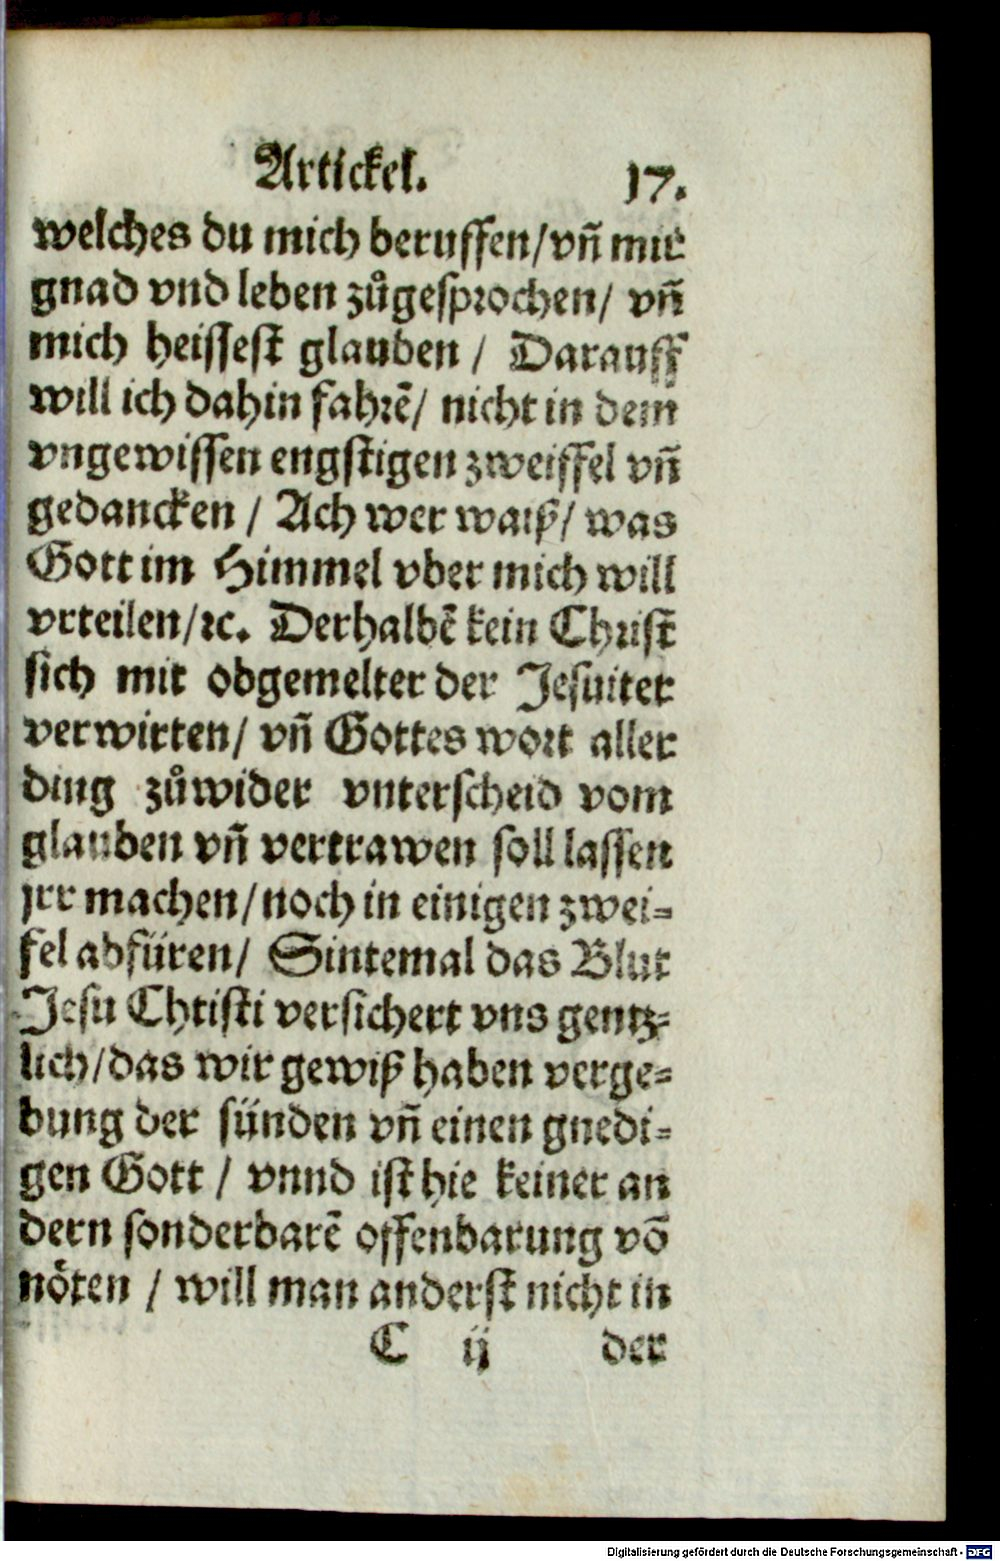 Artickel. 17.
welches du mich beruffen/vñ mir
gnad vnd leben zůgesprochen/ vñ
mich heissest glauben / Darauff
will ich dahin fahrẽ/ nicht in dem
vngewissen engstigen zweiffel vñ
gedancken / Ach wer waiß/ was
Gott im Himmel vber mich will
vrteilen/ꝛc. Derhalbẽ kein Christ
sich mit obgemelter der Jesuiter
verwirten/ vñ Gottes wort aller
ding zůwider vnterscheid vom
glauben vñ vertrawen soll lassen
jrr machen/noch in einigen zwei=
fel abfüren/ Sintemal das Blut
Jesu Christi versichert vns gentz=
lich/das wir gewiß haben verge=
bung der sünden vñ einen gnedi=
gen Gott / vnnd ist hie keiner an
dern sonderbarẽ offenbarung võ
nöten / will man anderst nicht in
C ij der
Digitalisierung gefördert durch die Deutsche Forschungsgemeinschaft - DFG